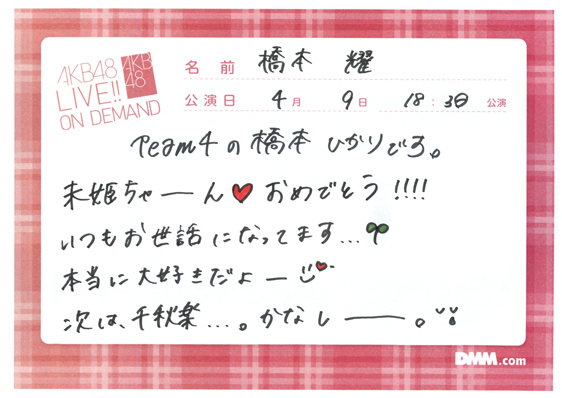 AKB48
LIVE!!
ON DEMAND
AKB
48
名前 橋本 耀
公演日 4月 9日 18:30 公演
Team4の橋本ひかりです。
未姫ちゃーん おめでとう!!!!
いつもお世話になってます...
本当に大好きだよー
次は、千秋楽...。かなしーー。
DMM.com